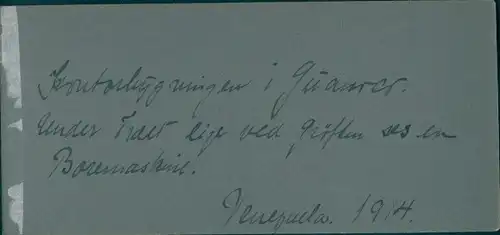 Kontorbygningen i Guanoco.
Under Træet lige ved Gröften ses en
Boremaskine.
Venezuela. 1914.